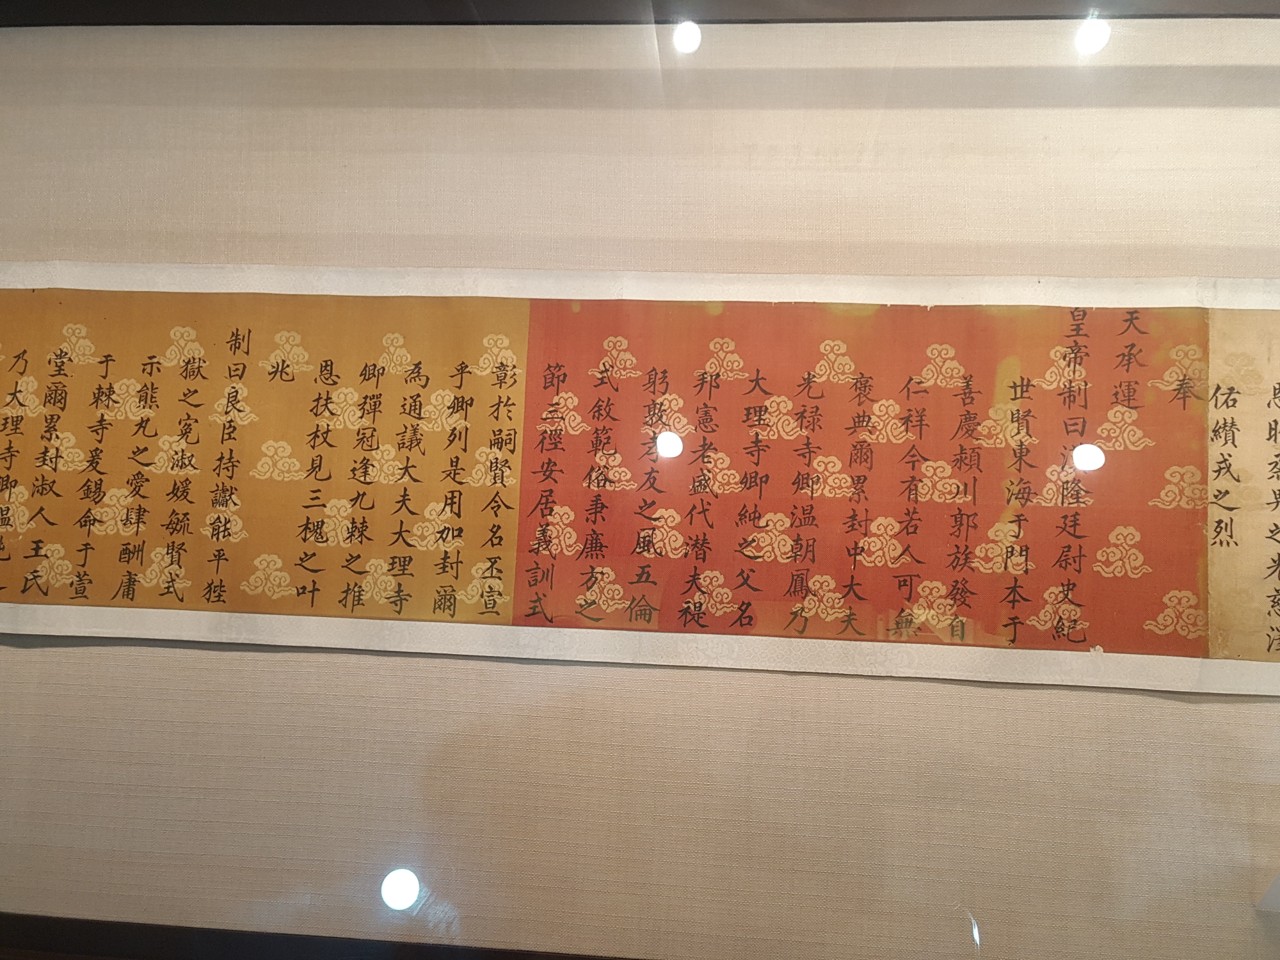 佑纘戎之烈
奉
天承運
皇帝制曰漢隆廷尉史紀
世賢東海于門本于
善慶潁川郭族發自
仁祥今有若人可無
褒典爾累封中大夫
光祿寺卿溫朝鳳乃
大理寺卿純之父名
邦憲老盛代潛夫禔
躬敦孝友之風五倫
式敘範俗秉廉方之
節三徑安居義訓式
彰於嗣賢令名丕宣
乎卿列是用加封爾
為通議大夫大理寺
卿彈冠逢九棘之推
恩扶杖見三槐之叶
兆
制曰良臣持讞能平狴
獄之冤淑媛毓賢式
示熊丸之愛肆酬庸
于棘寺爰錫命于萱
堂爾累封淑人王氏
乃大理寺卿溫純